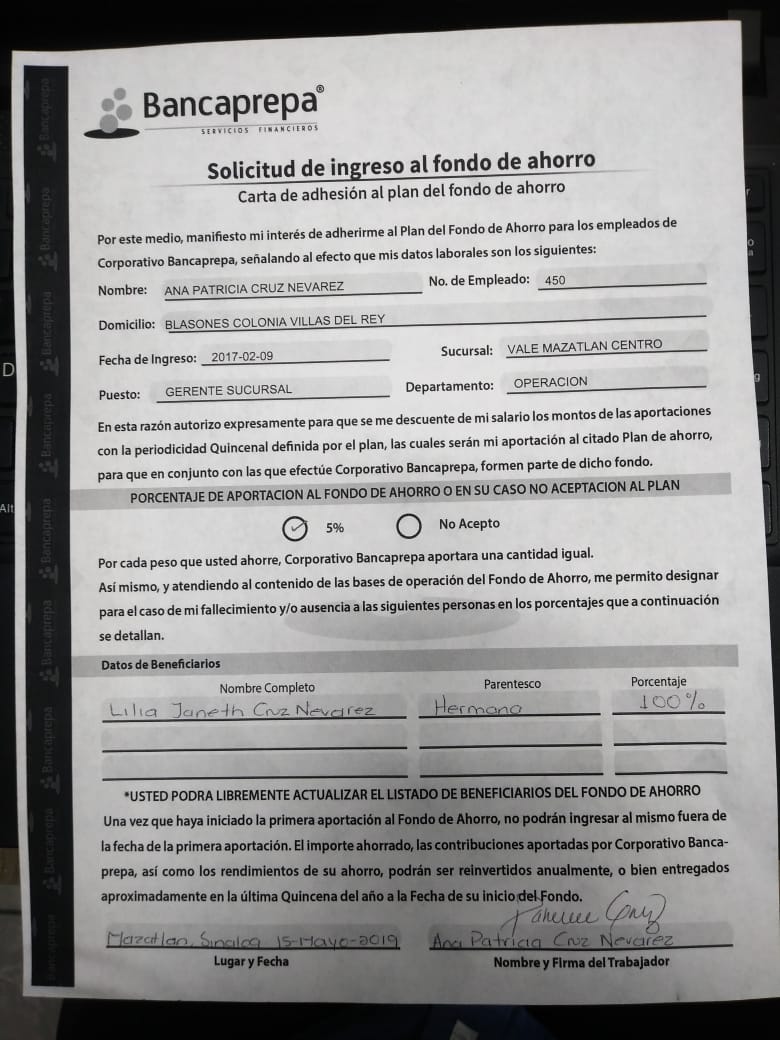 Bancaprepa®
SERVICIOS FINANCIEROS
Solicitud de ingreso al fondo de ahorro
Carta de adhesión al plan del fondo de ahorro
Por este medio, manifiesto mi interés de adherirme al Plan del Fondo de Ahorro para los empleados de
Corporativo Bancaprepa, señalando al efecto que mis datos laborales son los siguientes:
Nombre: ANA PATRICIA CRUZ NEVAREZ No. de Empleado: 450
Domicilio: BLASONES COLONIA VILLAS DEL REY
Fecha de Ingreso: 2017-02-09 Sucursal: VALE MAZATLAN CENTRO
Puesto: GERENTE SUCURSAL Departamento: OPERACION
En esta razón autorizo expresamente para que se me descuente de mi salario los montos de las aportaciones
con la periodicidad Quincenal definida por el plan, las cuales serán mi aportación al citado Plan de ahorro,
para que en conjunto con las que efectúe Corporativo Bancaprepa, formen parte de dicho fondo.
PORCENTAJE DE APORTACION AL FONDO DE AHORRO O EN SU CASO NO ACEPTACION AL PLAN
5% No Acepto
Por cada peso que usted ahorre, Corporativo Bancaprepa aportara una cantidad igual.
Así mismo, y atendiendo al contenido de las bases de operación del Fondo de Ahorro, me permito designar
para el caso de mi fallecimiento y/o ausencia a las siguientes personas en los porcentajes que a continuación
se detallan.
Datos de Beneficiarios
Nombre Completo Parentesco Porcentaje
Lilia Janeth Cruz Nevarez Hermana 100%
*USTED PODRA LIBREMENTE ACTUALIZAR EL LISTADO DE BENEFICIARIOS DEL FONDO DE AHORRO
Una vez que haya iniciado la primera aportación al Fondo de Ahorro, no podrán ingresar al mismo fuera de
la fecha de la primera aportación. El importe ahorrado, las contribuciones aportadas por Corporativo Banca-
prepa, así como los rendimientos de su ahorro, podrán ser reinvertidos anualmente, o bien entregados
aproximadamente en la última Quincena del año a la Fecha de su inicio del Fondo.
Mazatlan, Sinaloa 15-Mayo-2019 Ana Patricia Cruz Nevarez
Lugar y Fecha Nombre y Firma del Trabajador